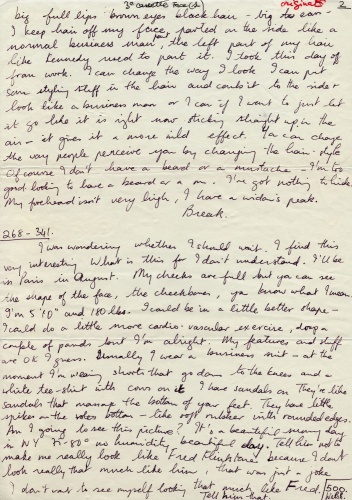 3º cassette Face (d)
originals
2
big full lips - brown eyes black hair - big ears -
I keep hair off my face, parted on the side like a
normal business man, the left part of my hair
like Kennedy used to part it. I took this day off
from work. I can change the way I look I can put
some styling stuff in the hair and comb it to the side &
look like a business man or I can if I want to just let
it go like it is right now sticking straight up in the
air - it gives it a more wild effect. You can change
the way people perceive you by changing the hair-style
Of course I don't have a beard or a mustache - I'm too
good looking to have a beard or a m. I've got nothing to hide.
My forehead isn't very high, I have a widow's peak.
Break.
268 - 341.
I was wondering whether I should wait. I find this
very interesting What is this for I don't understand. I'll be
in Paris in August. My cheeks are full but you can see
the shape of the face, the cheekbones, ya know what I mean.
I'm 5'10" and 180 lbs. I could be in a little better shape -
I could do a little more cardio-vascular exercise, drop a
couple of pounds but I'm alright. My features and stuff
are OK I guess. Usually I wear a business suit - at the
moment I'm wearing shorts that go down to the knees and a
white tee-shirt with cows on it I have sandals on They're like
sandals that massage the bottom of your feet. They have little
spikes on the bottom - like soft rubber with rounded edges.
Am I going to see this picture? It's a beautiful sunny day
in NY 75-80° no humidity, beautiful day. Tell him not to
make me really look like Fred Flintstone because I don't
look really that much like him, that was just a joke
I don't want to see myself looking that much like Fred.
Tell him that.